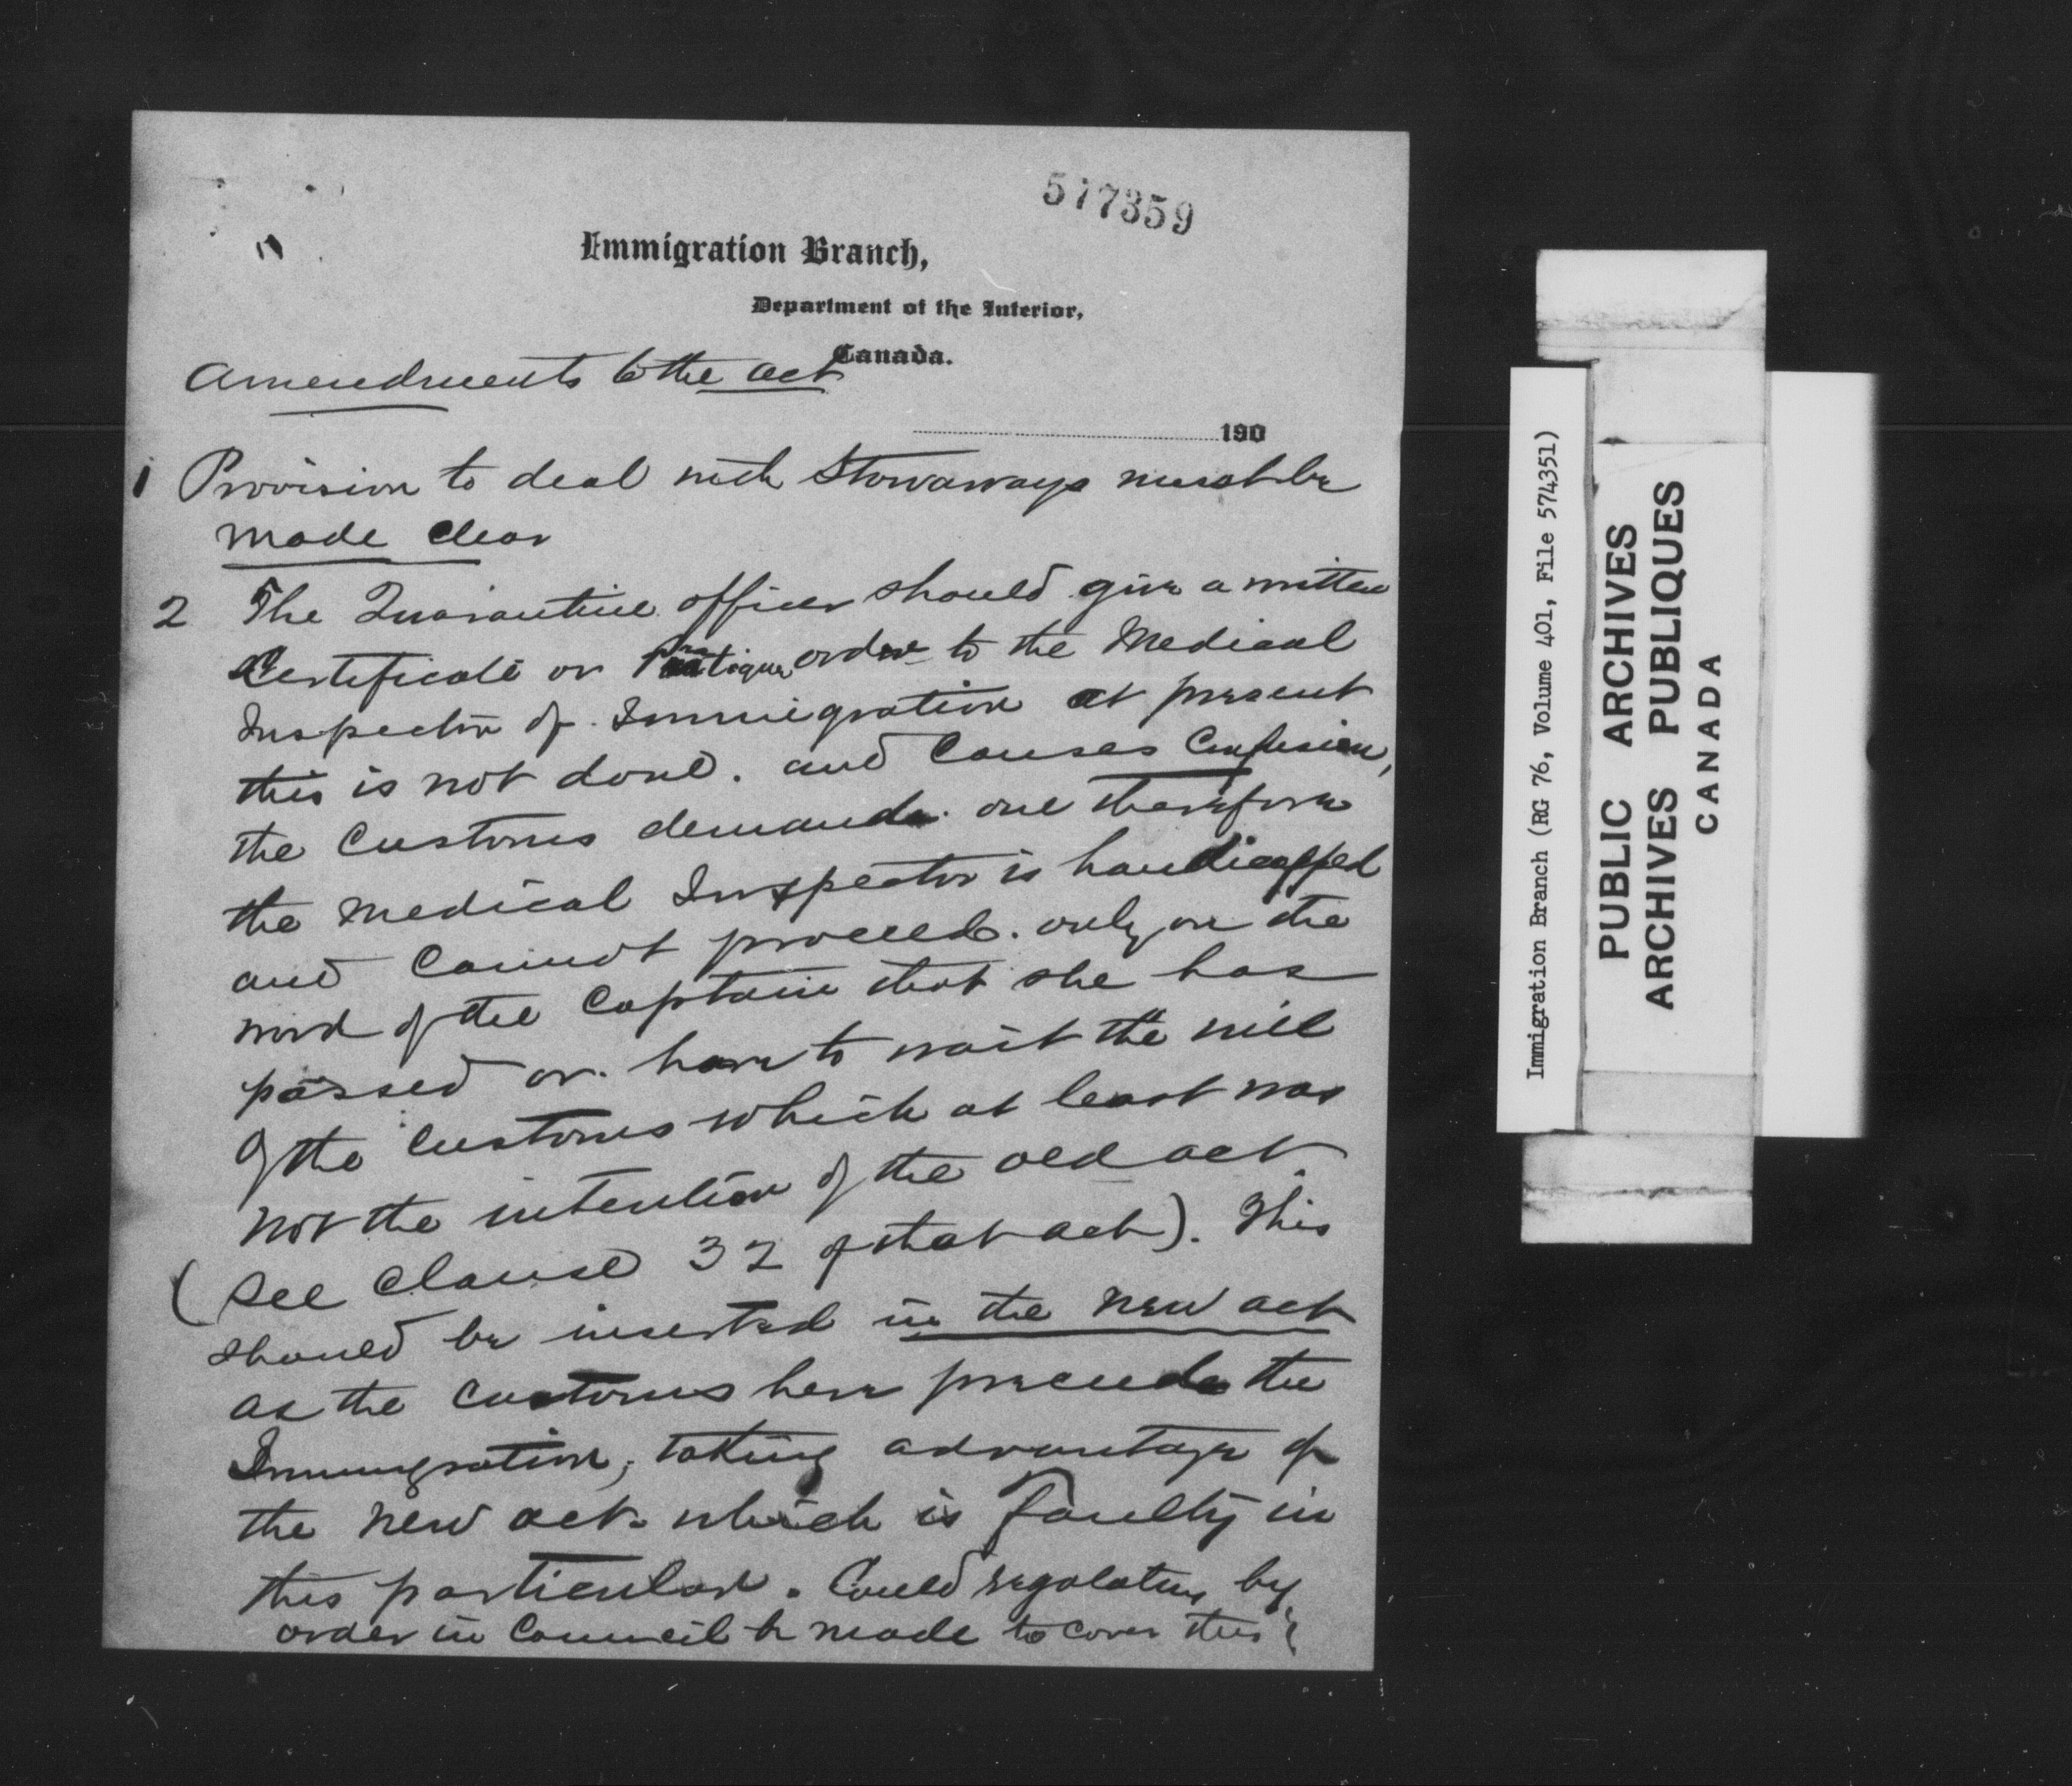 577359
Immigration Branch,
Department of the Interior,
Canada.
Amendments to the act
190
1 Provision to deal with Stowaways must be
made clear
2 The Quarantine officer should give a written
Certificate or Pratique order to the Medical
Inspector of Immigration at present
this is not done. and Causes Confusion,
the Customs demands one therefore
the Medical Inspector is handicapped
and Cannot proceed. only on the
word of the Captain that she has
passed or have to wait the will
of the Customs which at least was
not the intention of the old act.
(see Clause 32 of that act). This
should be inserted in the new act
as the Customs here precede the
Immigration, taking advantage of
the new act which is faulty in
this particular. Could regulation by
order in Council be made to cover this
Immigration Branch (RG 76, Volume 401, File 574351)
PUBLIC ARCHIVES
ARCHIVES PUBLIQUES
CANADA